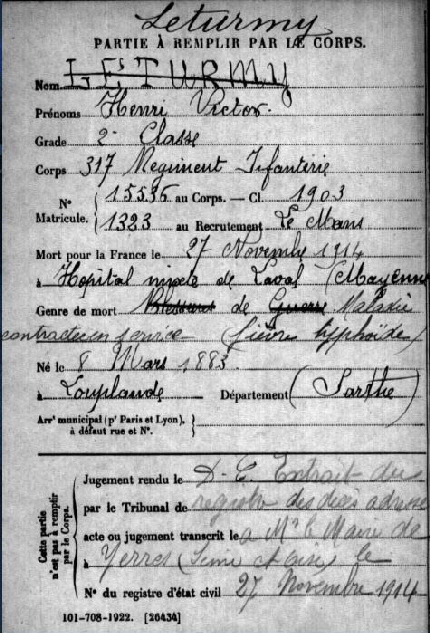 Leturmy
PARTIE À REMPLIR PAR LE CORPS.
Nom LETURMY
Prénoms Henri Victor.
Grade 2e Classe
Corps 317 Regiment Infanterie
N° Matricule. 15536 au Corps. — Cl. 1903
1323 au Recrutement Le Mans
Mort pour la France le 27 Novembre 1914
à Hopital mixte de Laval (Mayenne
Genre de mort Blessures de Guerre Maladie
contractée en service (fièvre typhoïde)
Né le 8 Mars 1883
à Louplande Département (Sarthe)
Arrt municipal (pr Paris et Lyon),
à défaut rue et N°.
Cette partie n'est pas à remplir par le Corps.
Jugement rendu le D. C. Extrait du
par le Tribunal de registre des décès adressé
acte ou jugement transcrit le a Mr le Maire de
à Yerres (Seine et Oise) le
N° du registre d'état civil 27 Novembre 1914
101-708-1922. [26434]